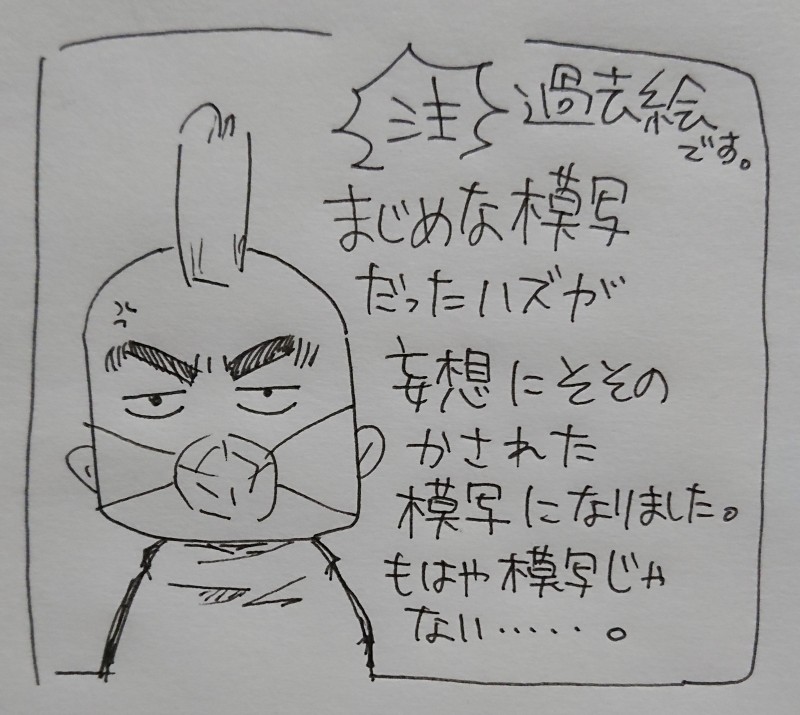 注 過去絵
です。
まじめな模写
だったハズが
妄想にそその
かされた
模写になりました。
もはや模写じゃ
ない・・・・・。